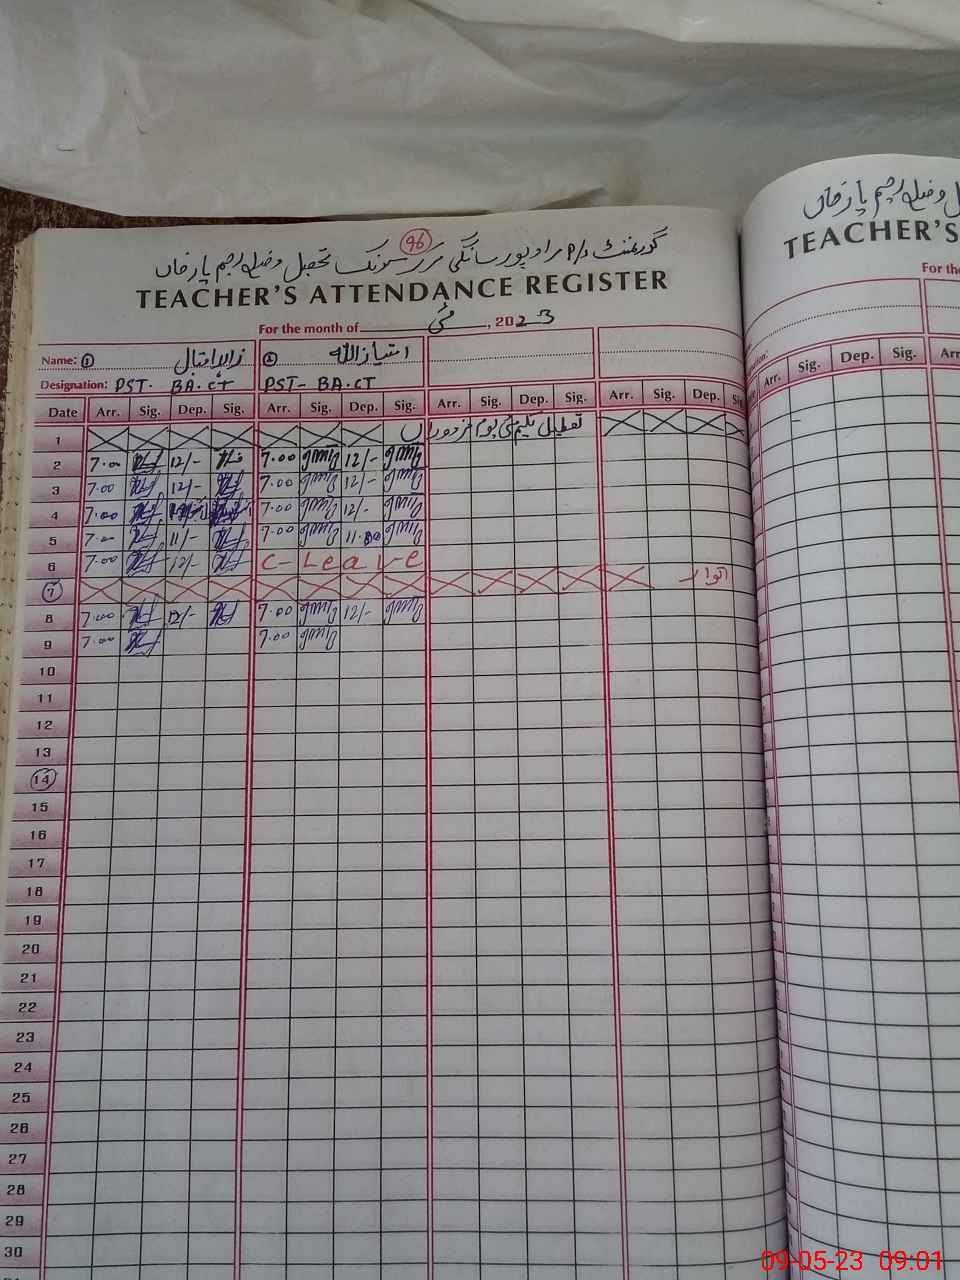 96
گورنمنٹ P/S مراد پور سانگی مرکز سونک تحصیل و ضلع رحیم یار خاں
TEACHER'S ATTENDANCE REGISTER
For the month of مئی, 2023
Name: ① اقبال ② امتیاز اللہ
Designation: PST. BA.CT PST- BA.CT
Date Arr. Sig. Dep. Sig. Arr. Sig. Dep. Sig. Arr. Sig. Dep. Sig. Arr. Sig. Dep. Sig.
1 تعطیل یکم مئی یوم مزدوراں
2 7.00 12/- 7.00 12/-
3 7.00 12/- 7.00 12/-
4 7.00 7.00 12/-
5 7.00 11/- 7.00 11.00
6 7.00 12/- C-Leave
7 اتوار
8 7.00 12/- 7.00 12/-
9 7.00 7.00
10
11
12
13
14
15
16
17
18
19
20
21
22
23
24
25
26
27
28
29
30
و ضلع رحیم یار خاں
TEACHER'S
For the
Arr. Sig. Dep. Sig. Arr
09-05-23 09:01